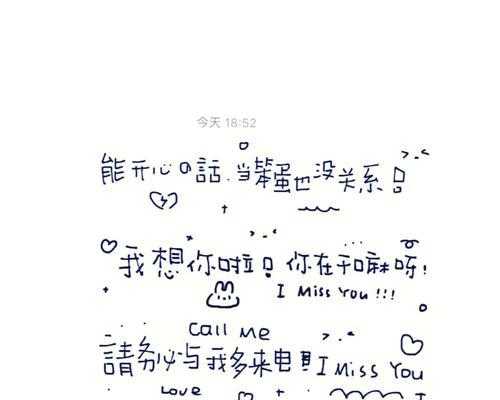 今天 18:52
能开心の話.当笨蛋也没关系!
我想你啦! 你在干嘛呀!
I Miss You !!!
Call Me
請务必与我多来电!! I Miss You
Love